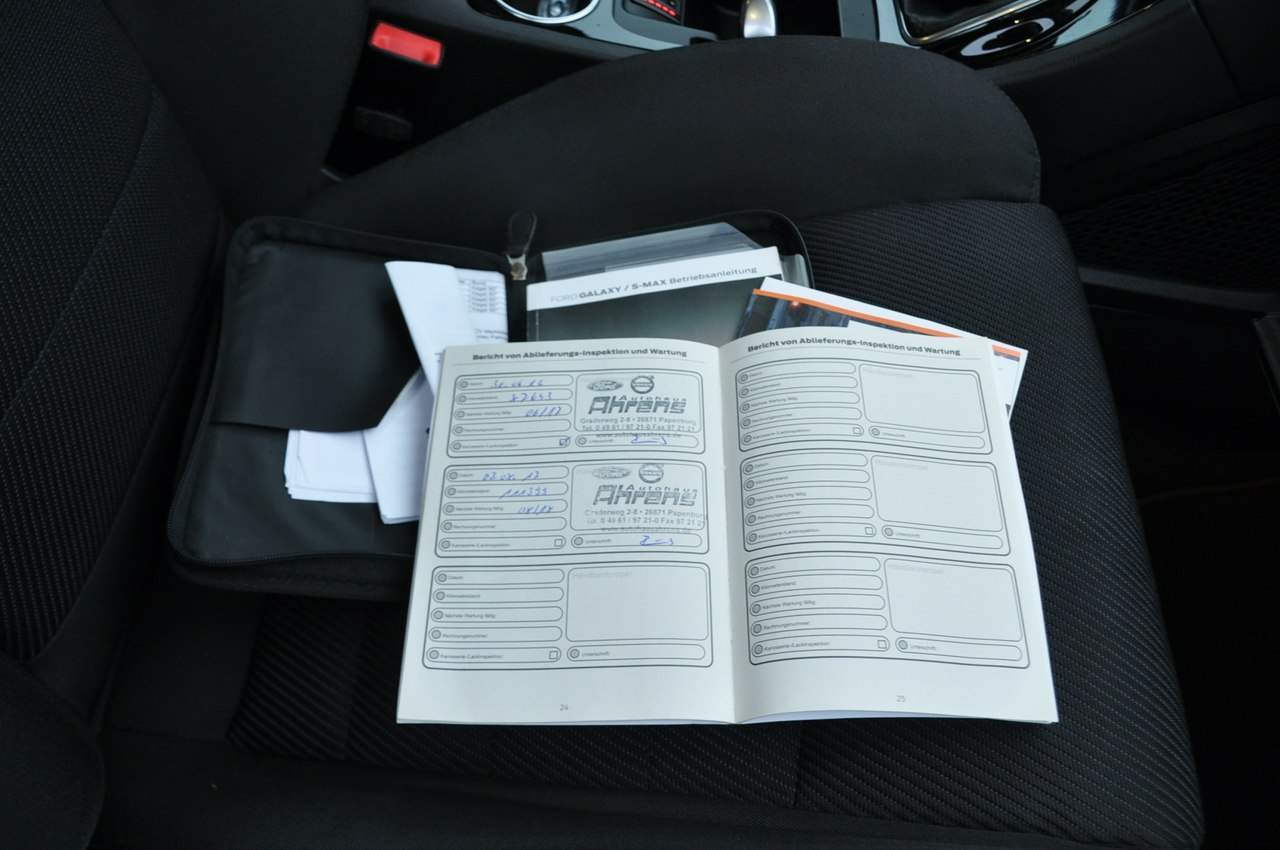 FORD GALAXY / S-MAX Betriebsanleitung
Bericht von Ablieferungs-Inspektion und Wartung
Datum:
Kilometerstand:
Nächste Wartung fällig:
06/17
Rechnungsnummer:
Karosserie-/Lackinspektion:
Ford
VOLVO
Autohaus
Ahrens
Graderweg 2-8 • 26871 Papenburg
Tel. 0 49 61 / 97 21-0 Fax 97 21 21
www.autohausahrens.de
Unterschrift:
Datum:
Kilometerstand:
111399
Nächste Wartung fällig:
Rechnungsnummer:
Karosserie-/Lackinspektion:
Autohaus
Ahrens
Graderweg 2-8 • 26871 Papenburg
0 49 61 / 97 21-0 Fax 97 21 21
www.autohausahrens.de
Unterschrift:
Datum:
Kilometerstand:
Nächste Wartung fällig:
Rechnungsnummer:
Karosserie-/Lackinspektion:
Händlerstempel
Unterschrift:
24
Bericht von Ablieferungs-Inspektion und Wartung
Datum:
Kilometerstand:
Nächste Wartung fällig:
Rechnungsnummer:
Karosserie-/Lackinspektion:
Händlerstempel
Unterschrift:
Datum:
Kilometerstand:
Nächste Wartung fällig:
Rechnungsnummer:
Karosserie-/Lackinspektion:
Händlerstempel
Unterschrift:
Datum:
Kilometerstand:
Nächste Wartung fällig:
Rechnungsnummer:
Karosserie-/Lackinspektion:
Händlerstempel
Unterschrift:
25